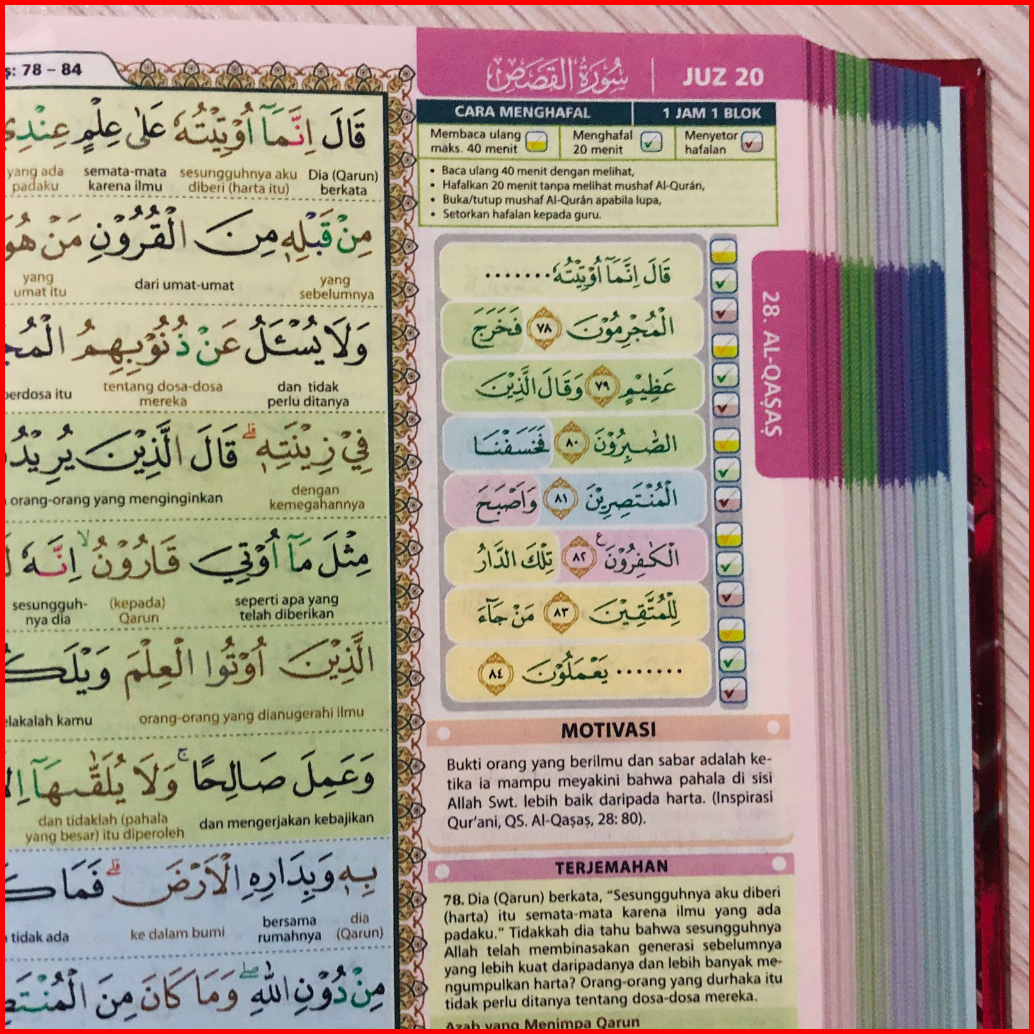 : 78 – 84
سُورَةُ الْقَصَصِ
JUZ 20
قَالَ اِنَّمَآ اُوْتِيْتُهٗ عَلٰى عِلْمٍ عِنْدِيْ
Dia (Qarun) berkata
sesungguhnya aku diberi (harta itu)
semata-mata karena ilmu
yang ada padaku
مِنْ قَبْلِهٖ مِنَ الْقُرُوْنِ مَنْ هُوَ
yang sebelumnya
dari umat-umat
yang umat itu
وَلَا يُسْـَٔلُ عَنْ ذُنُوْبِهِمُ
dan tidak perlu ditanya
tentang dosa-dosa mereka
berdosa itu
فِيْ زِيْنَتِهٖ ۗ قَالَ الَّذِيْنَ يُرِيْدُ
dengan kemegahannya
orang-orang yang menginginkan
مِثْلَ مَآ اُوْتِيَ قَارُوْنُۙ اِنَّهٗ
seperti apa yang telah diberikan
(kepada) Qarun
sesungguh-nya dia
الَّذِيْنَ اُوْتُوا الْعِلْمَ وَيْلَك
orang-orang yang dianugerahi ilmu
elakalah kamu
وَعَمِلَ صَالِحًا ۚ وَلَا يُلَقّٰىهَآ
dan mengerjakan kebajikan
dan tidaklah (pahala yang besar) itu diperoleh
بِهٖ وَبِدَارِهِ الْاَرْضَ ۗ فَمَا
dia (Qarun)
bersama rumahnya
ke dalam bumi
tidak ada
مِنْ دُوْنِ اللّٰهِ ۖ وَمَا كَانَ مِنَ
CARA MENGHAFAL
1 JAM 1 BLOK
Membaca ulang maks. 40 menit
Menghafal 20 menit
Menyetor hafalan
• Baca ulang 40 menit dengan melihat,
• Hafalkan 20 menit tanpa melihat mushaf Al-Qurán,
• Buka/tutup mushaf Al-Qurán apabila lupa,
• Setorkan hafalan kepada guru.
قَالَ اِنَّمَآ اُوْتِيْتُهٗ.......
الْمُجْرِمُوْنَ ٧٨ فَخَرَجَ
عَظِيْمٍ ٧٩ وَقَالَ الَّذِيْنَ
الصّٰبِرُوْنَ ٨٠ فَخَسَفْنَا
الْمُنْتَصِرِيْنَ ٨١ وَاَصْبَحَ
الْكٰفِرُوْنَ ࣖ ٨٢ تِلْكَ الدَّارُ
لِلْمُتَّقِيْنَ ٨٣ مَنْ جَآءَ
....... يَعْمَلُوْنَ ٨٤
28. AL-QAṢAṢ
MOTIVASI
Bukti orang yang berilmu dan sabar adalah ke-
tika ia mampu meyakini bahwa pahala di sisi
Allah Swt. lebih baik daripada harta. (Inspirasi
Qur'ani, QS. Al-Qaṣaṣ, 28: 80).
TERJEMAHAN
78. Dia (Qarun) berkata, "Sesungguhnya aku diberi
(harta) itu semata-mata karena ilmu yang ada
padaku." Tidakkah dia tahu bahwa sesungguhnya
Allah telah membinasakan generasi sebelumnya
yang lebih kuat daripadanya dan lebih banyak me-
ngumpulkan harta? Orang-orang yang durhaka itu
tidak perlu ditanya tentang dosa-dosa mereka.
Azab yang Menimpa Qarun